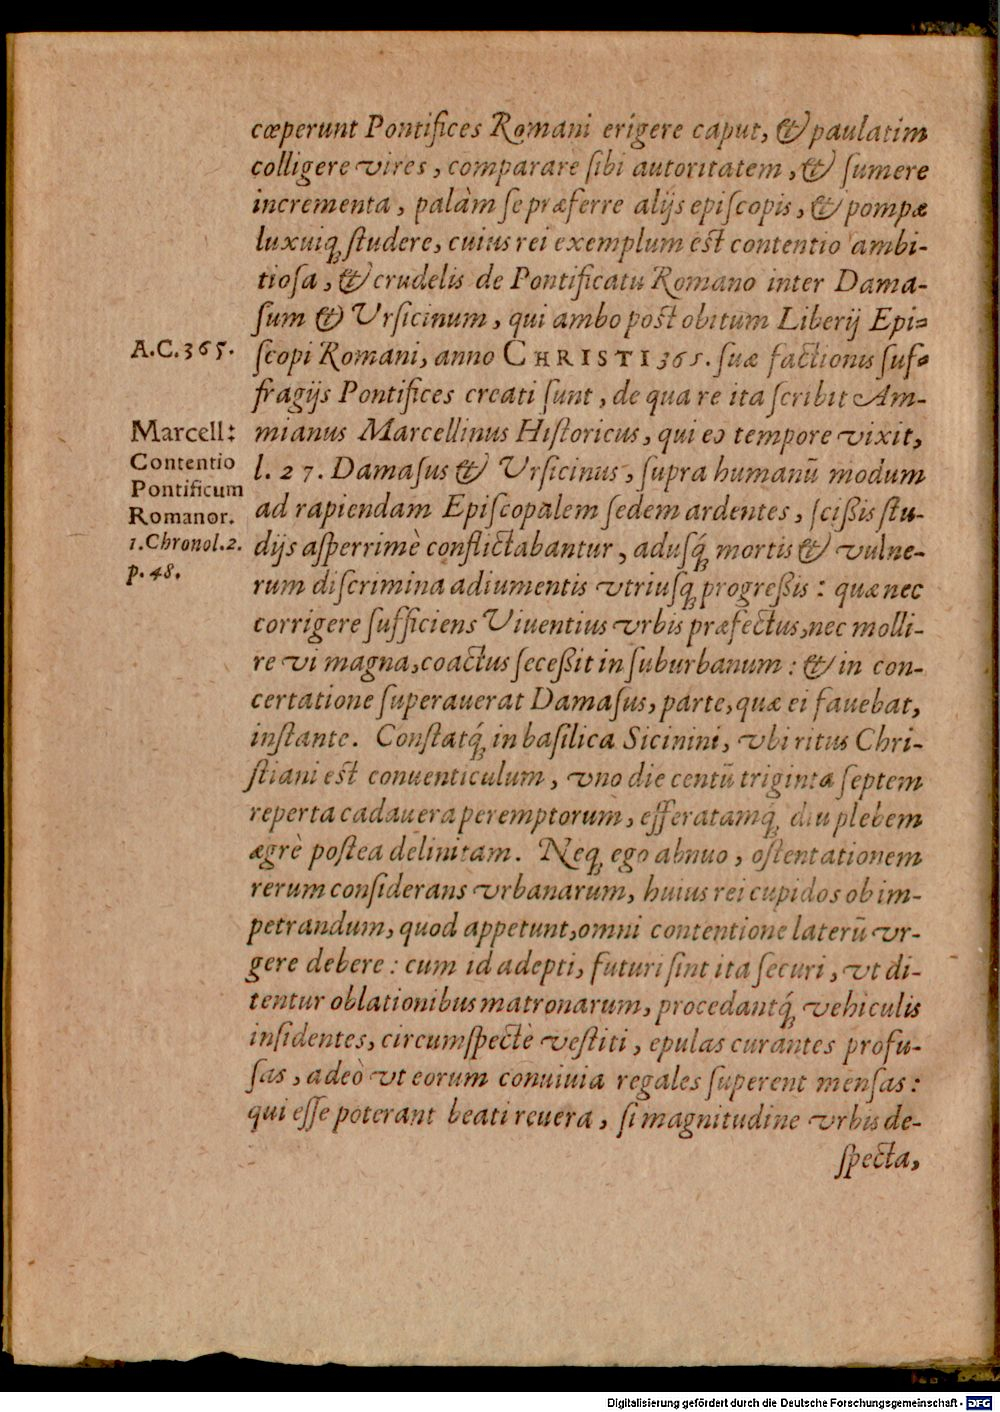 cœperunt Pontifices Romani erigere caput, & paulatim
colligere vires, comparare sibi autoritatem, & sumere
incrementa, palàm se præferre alijs episcopis, & pompæ
luxuiq́; studere, cuius rei exemplum est contentio ambi-
tiosa, & crudelis de Pontificatu Romano inter Dama-
sum & Vrsicinum, qui ambo post obitum Liberij Epi-
A.C.365.
scopi Romani, anno CHRISTI 365. suæ factionis suf-
fragijs Pontifices creati sunt, de qua re ita scribit Am-
Marcell:
mianus Marcellinus Historicus, qui eo tempore vixit,
Contentio
l. 27. Damasus & Vrsicinus, supra humanū modum
Pontificum
Romanor.
ad rapiendam Episcopalem sedem ardentes, scißis stu-
1.Chronol.2.
dijs asperrimè conflictabantur, adusq́; mortis & vulne-
p. 48.
rum discrimina adiumentis vtriusq; progreßis: quæ nec
corrigere sufficiens Viuentius vrbis præfectus, nec molli-
re vi magna, coactus seceßit in suburbanum: & in con-
certatione superauerat Damasus, parte, quæ ei fauebat,
instante. Constatq́; in basilica Sicinini, vbi ritus Chri-
stiani est conuenticulum, vno die centū triginta septem
reperta cadauera peremptorum, efferatamq́; diu plebem
ægrè postea delinitam. Neq; ego abnuo, ostentationem
rerum considerans vrbanarum, huius rei cupidos ob im-
petrandum, quod appetunt, omni contentione laterū vr-
gere debere: cum id adepti, futuri sint ita securi, vt di-
tentur oblationibus matronarum, procedantq́; vehiculis
insidentes, circumspectè vestiti, epulas curantes profu-
sas, adeò vt eorum conuiuia regales superent mensas:
qui esse poterant beati reuera, si magnitudine vrbis de-
specta,
Digitalisierung gefördert durch die Deutsche Forschungsgemeinschaft - DFG